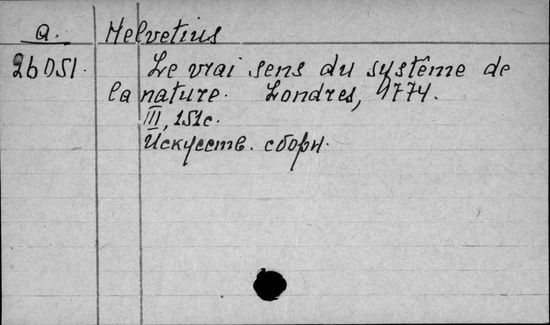 a. Helvetius
26051. Le vrai sens du système de
la nature. Londres, 1774.
III, 151c.
Искусств. сборн.